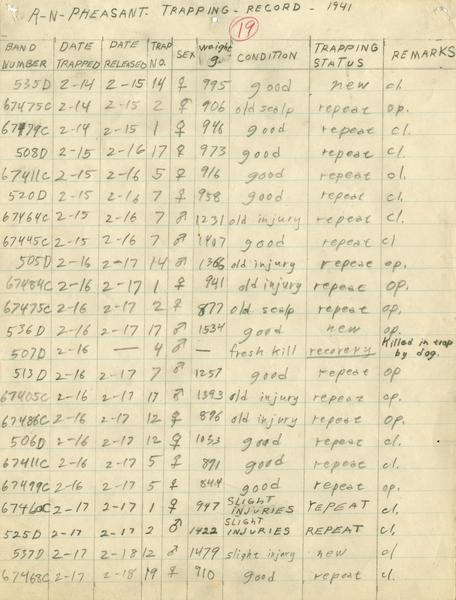 R-N-PHEASANT- TRAPPING-RECORD- 1941
19
BAND NUMBER DATE TRAPPED DATE RELEASED TRAP NO. SEX weight g. CONDITION TRAPPING STATUS REMARKS
535D 2-14 2-15 14 ♀ 995 good new cl.
67475C 2-14 2-15 2 ♀ 906 old scalp repeat op.
67479C 2-14 2-15 1 ♀ 946 good repeat cl.
508D 2-15 2-16 17 ♀ 973 good repeat cl.
67411C 2-15 2-16 5 ♀ 916 good repeat cl.
520D 2-15 2-16 7 ♀ 958 good repeat cl.
67464C 2-15 2-16 7 ♂ 1231 old injury repeat cl.
67445C 2-15 2-16 7 ♂ 1407 good repeat cl
505D 2-16 2-17 14 ♂ 1366 old injury repeat op.
67484C 2-16 2-17 1 ♀ 941 old injury repeat op.
67475C 2-16 2-17 2 ♀ 877 old scalp repeat op.
536D 2-16 2-17 17 ♂ 1534 good new op.
507D 2-16 — 4 ♂ — fresh kill recovery Killed in trap by dog.
513D 2-16 2-17 7 ♂ 1257 good repeat op
67405C 2-16 2-17 17 ♂ 1393 old injury repeat op.
67486C 2-16 2-17 12 ♀ 896 old injury repeat op.
506D 2-16 2-17 12 ♀ 1033 good repeat cl.
67411C 2-16 2-17 5 ♀ 891 good repeat cl.
67499C 2-16 2-17 5 ♀ 844 good repeat op.
2-17 2-17 1 ♀ 947 SLIGHT INJURIES REPEAT cl.
525D 2-17 2-17 2 ♂ 1422 SLIGHT INJURIES REPEAT cl.
537D 2-17 2-18 12 ♂ 1479 slight injury new cl
67468C 2-17 2-18 19 ♀ 910 good repeat cl.